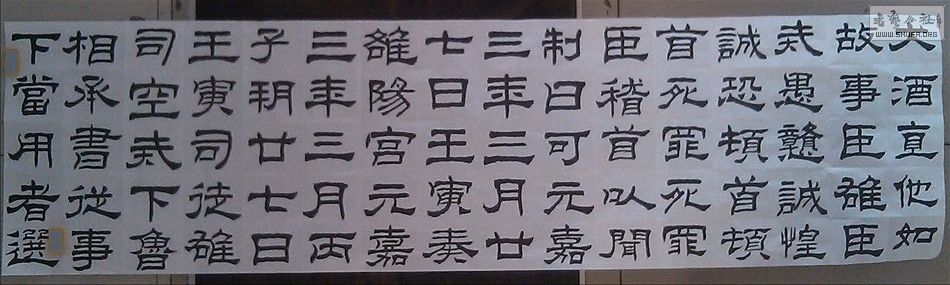 犬酒直他如
故事臣雄臣
戒愚戇誠惶
誠恐頓首頓
首死罪死罪
臣稽首以聞
制曰可元嘉
三年三月廿
七日壬寅奏
雒陽宮元嘉
三年三月丙
子朔廿七日
壬寅司徒雄
司空戒下魯
相承書從事
下當用者選
WWW.SHUFA.ORG